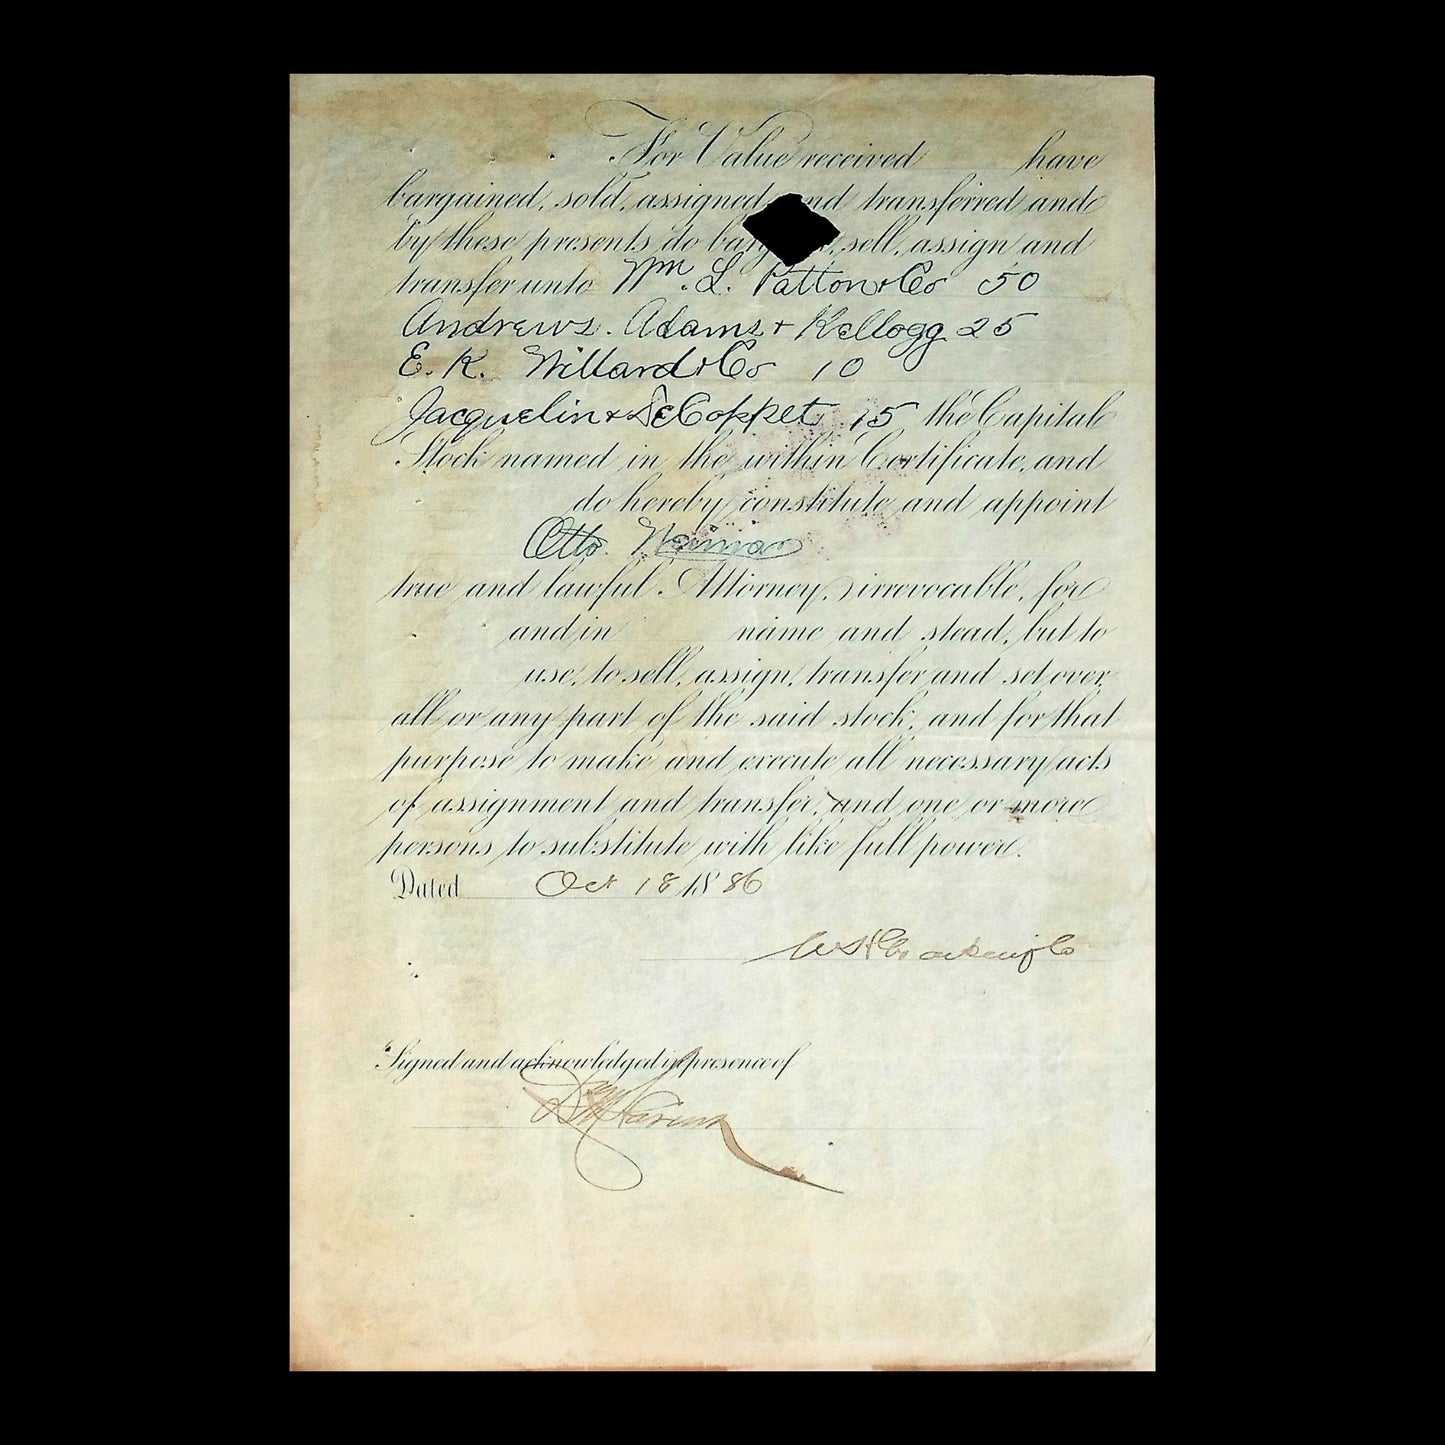 For Value received have
bargained, sold, assigned and transferred and
by these presents do bar , sell, assign and
transfer unto Wm. L. Patton & Co 50
Andrews. Adams & Kellogg 25
E. K. Willard & Co 10
Jacquelin & De Coppet 15 the Capital
Stock named in the within Certificate, and
do hereby constitute and appoint
Otto
true and lawful Attorney, irrevocable, for
and in name and stead, but to
use, to sell, assign, transfer and set over,
all or any part of the said stock, and for that
purpose to make and execute all necessary acts
of assignment and transfer, and one or more
persons to substitute with like full power.
Dated Oct 18 1886
Signed and acknowledged in presence of